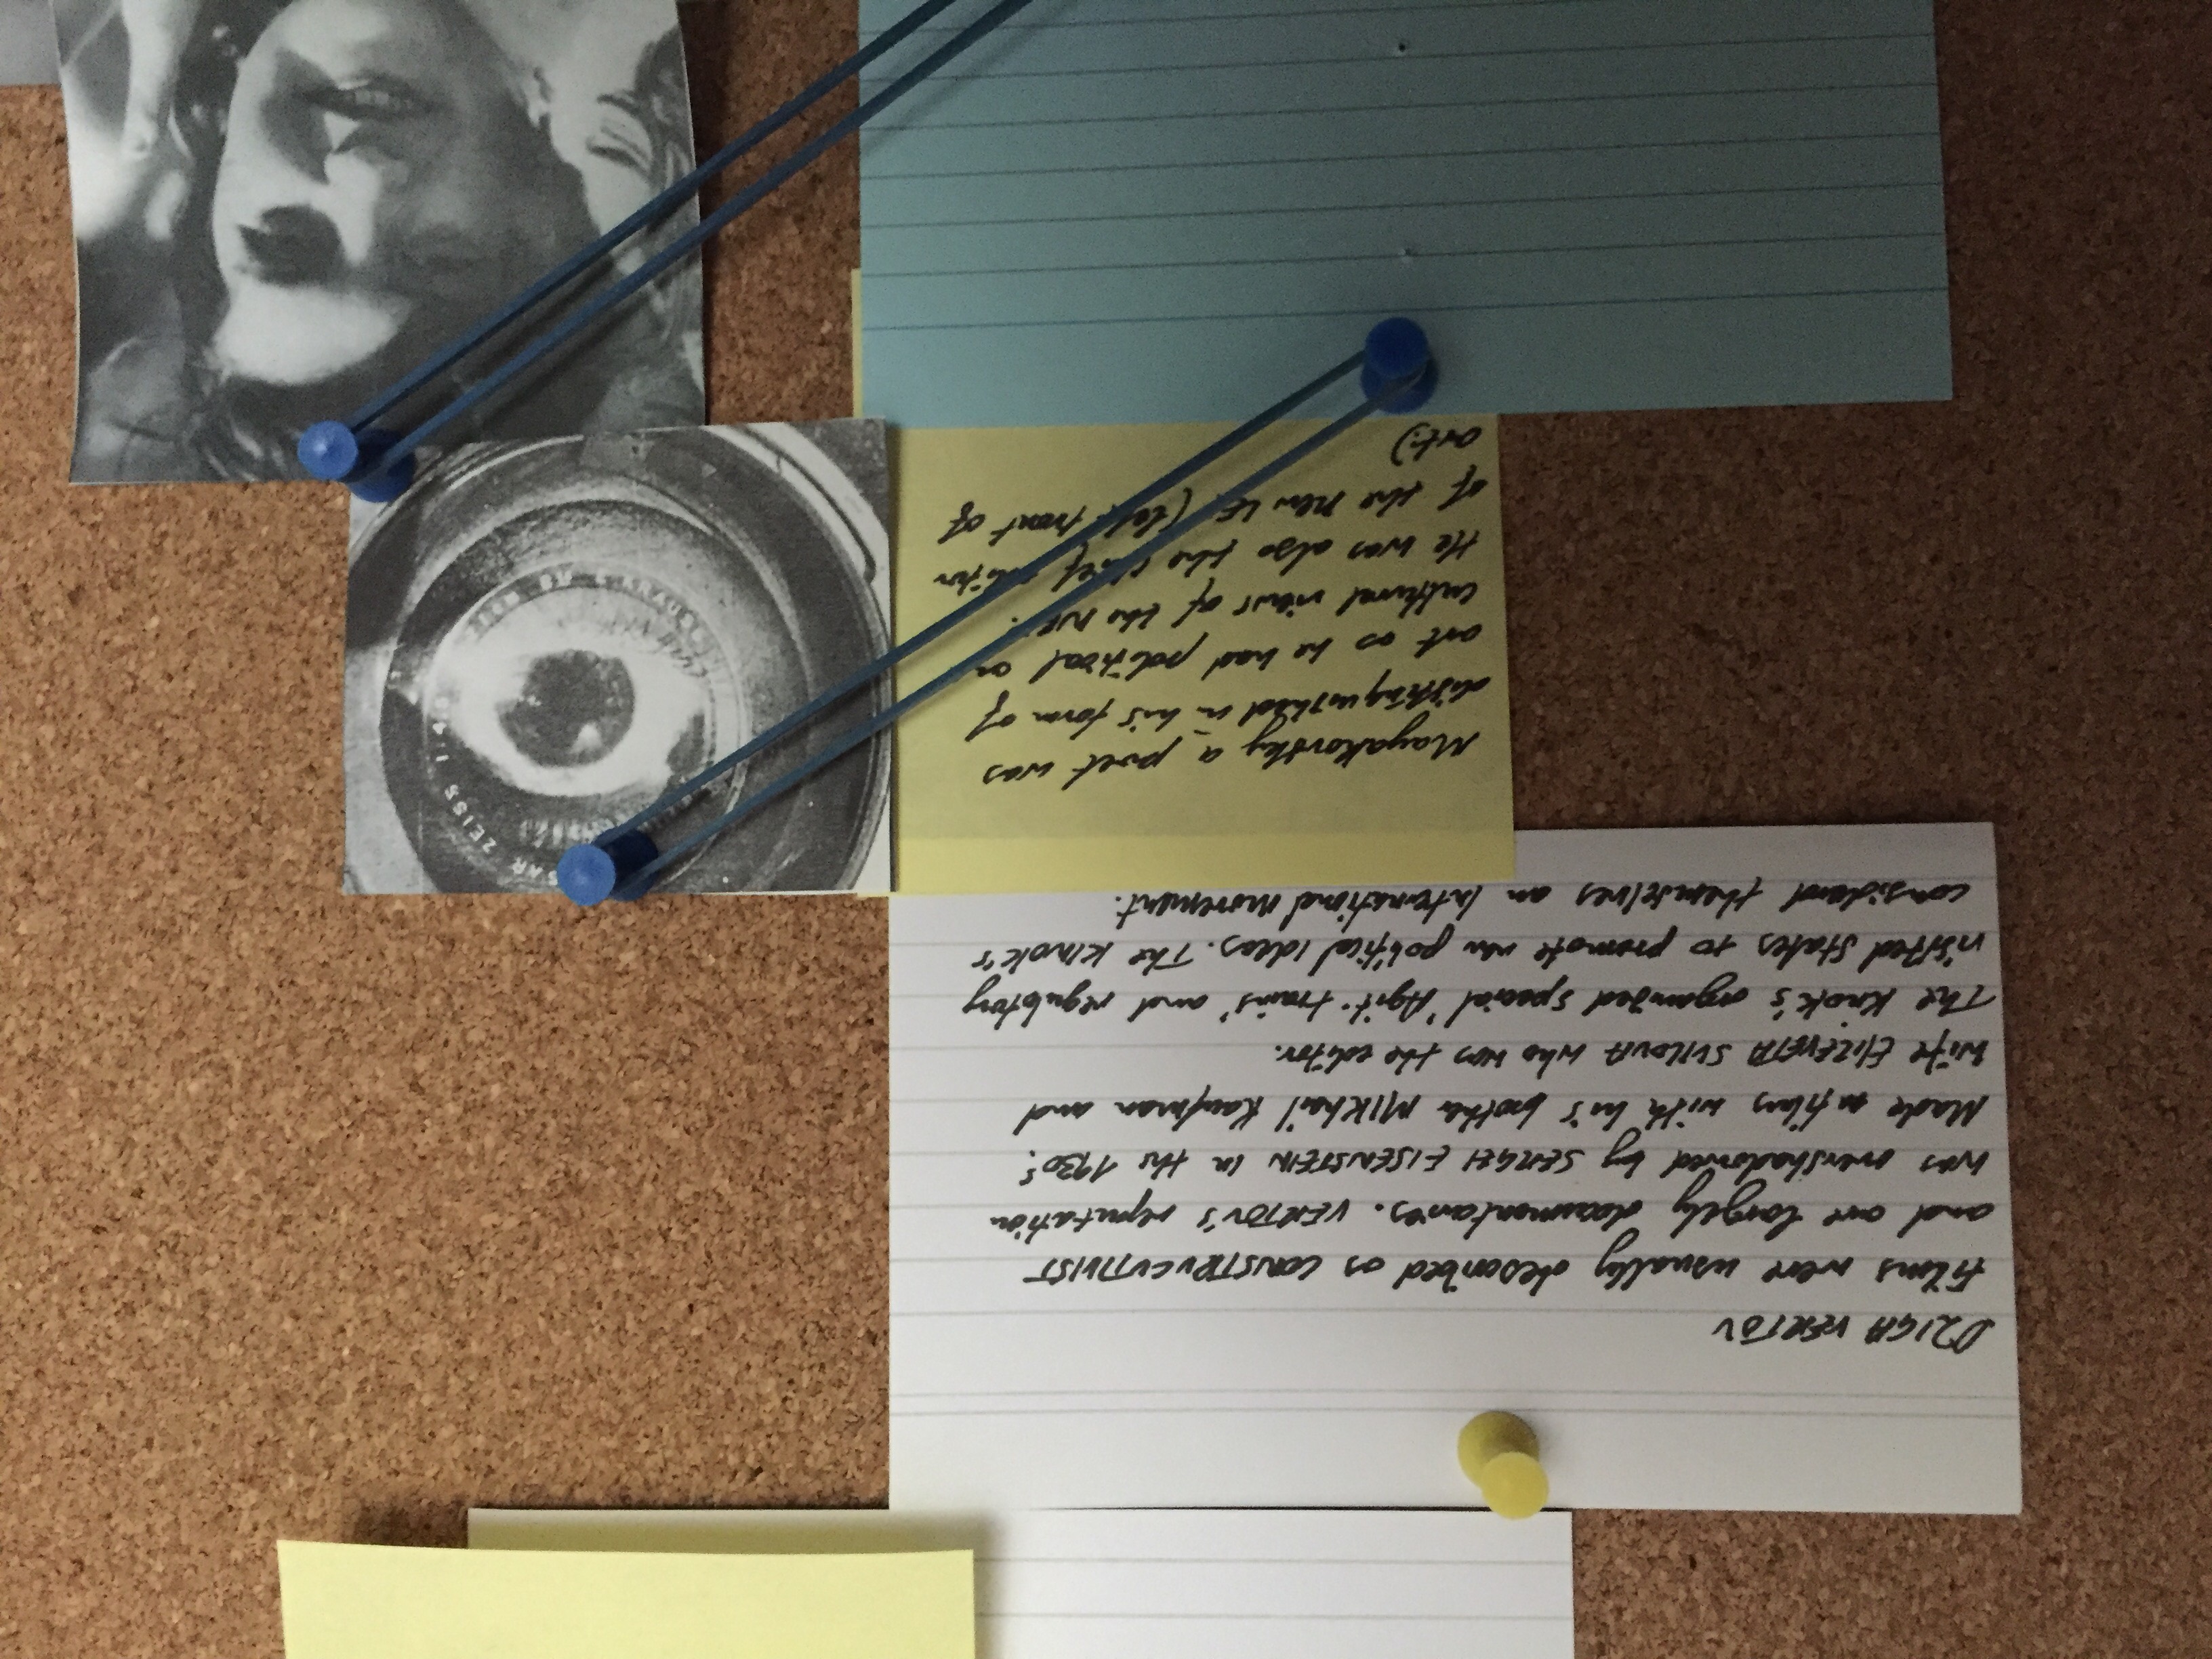 DZIGA VERTOV
Films were usually described as CONSTRUCUTIVIST
and are largely documentaries. VERTOV's reputation
was overshadowed by SERGEI EISENSTEIN in the 1930s.
Made films with his brother MIKhail Kaufman and
wife ElIZEVETA SVILOVA who was the editor.
The Kinok's organized special 'Agit-trains' and regulatory
visited States to promote new political Ideas. The KINOK's
considerd themselves an International movement.
Mayakovsky a poet was
distinguished in his form of
art as he had political
cultural views of the
He was also the chief editor
of the New (left front of
art.)
ZEISS